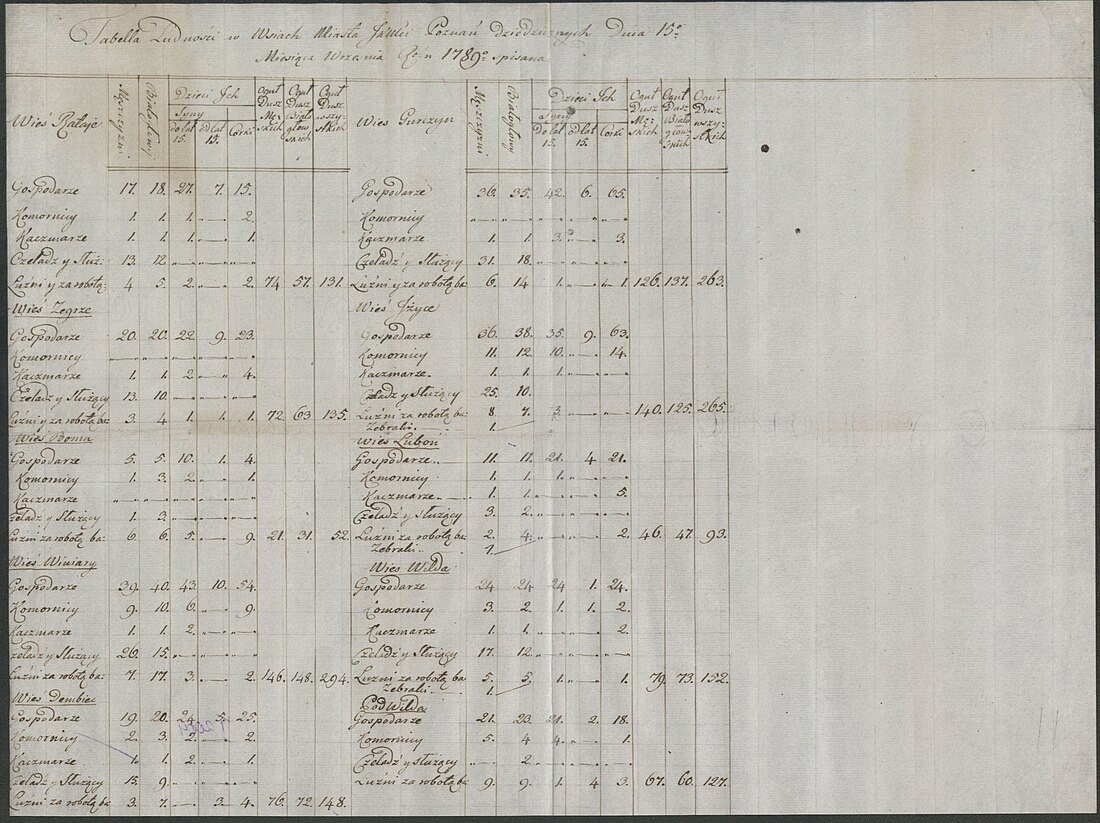 Tabella Ludności w Wsiach Miasta JKMci Poznań dziedzicznych Dnia 15º
Miesiąca Września Roku 1789º spisana
Wieś Rataje Męszczyzni Białogłowy Dzieci Ich Ogół Dusz Męskich Ogół Dusz Białogłowskich Ogół Dusz wszystkich
Syny do lat 15. od lat 15. Córki
Gospodarze 17. 18. 27. 7. 15.
Komornicy 1. 1. 1. 2.
Kaczmarze 1. 1. 1. 1.
Czeladź y Służ: 13. 12
Luźni y za robotą: 4 5. 2. 2. 74 57. 131.
Wieś Zegrze
Gospodarze 20. 20. 22. 9. 23.
Komornicy
Kaczmarze 1. 1. 2. 4.
Czeladź y Służący 13. 10.
Luźni y za robotą ba: 3. 4 1. 1. 1. 72. 63 135.
Wieś Boma
Gospodarze 5. 5. 10. 1. 4.
Komornicy 1. 3. 2. 1.
Kaczmarze
Czeladź y Służący 1. 3.
Luźni za robotą ba: 6. 6. 5. 9. 21. 31. 52.
Wieś Winiary
Gospodarze 39. 40. 43. 10. 54.
Komornicy 9. 10. 6. 9.
Kaczmarze 1. 1. 2.
Czeladź y Służący 26. 15.
Luźni za robotą ba: 7. 17. 3. 2. 146. 148. 294.
Wieś Dembiec
Gospodarze 19. 20. 5. 25.
Komornicy 2. 3. 2. 2.
Kaczmarze 1. 1. 2. 1.
Czeladź y Służący 15. 9.
Luźni za robotą ba: 3. 7. 3. 4. 76. 72. 148.
Wieś Gurczyn Męszczyzni Białogłowy Dzieci Ich Ogół Dusz Męskich Ogół Dusz Białogłowskich Ogół Dusz wszystkich
Syny do lat 15. od lat 15. Córki
Gospodarze 36. 35. 42. 6. 65.
Komornicy
Kaczmarze 1. 1. 3. 3.
Czeladź y Służący 31. 18.
Luźni y za robotą ba: 6. 14 1. 1. 126. 137. 263.
Wieś Jżyce
Gospodarze 36. 38. 35. 9. 63.
Komornicy 11. 12. 10. 14.
Kaczmarze 1. 1. 1.
Czeladź y Służący 25. 10.
Luźni za robotą ba: 8. 7. 3. 140. 125. 265.
Żebraki 1.
Wieś Luboń
Gospodarze 11. 11. 21. 4 21.
Komornicy 1. 1. 1.
Kaczmarze 1. 1. 5.
Czeladź y Służący 3. 2.
Luźni za robotą ba: 2. 4. 2. 46. 47. 93.
Żebraki 1.
Wieś Wilda
Gospodarze 24 24 24 1. 24.
Komornicy 3. 2. 1. 1. 2.
Kaczmarze 1. 1. 2.
Czeladź y Służący 17. 12.
Luźni za robotą ba 5. 5. 1. 1. 79. 73. 152.
Żebraki 1.
Pod Wilda
Gospodarze 21. 23. 21. 2. 18.
Komornicy 5. 4 4. 1.
Czeladź y Służący 2.
Luźni za robotą ba: 9. 9. 1. 4 3. 67. 60. 127.